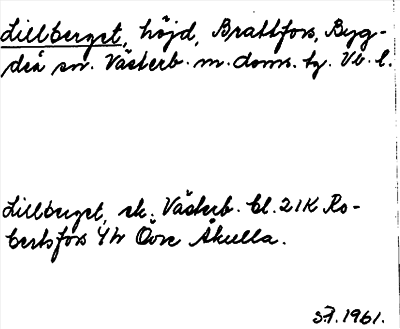 Lillberget, höjd, Brattfors, Byg-
deå sn. Västerb. m. doms. tg. Vb. l.
Lillberget, ek. Västerb. bl. 21K Ro-
bertsfors 4h Övre Åkulla.
1961.